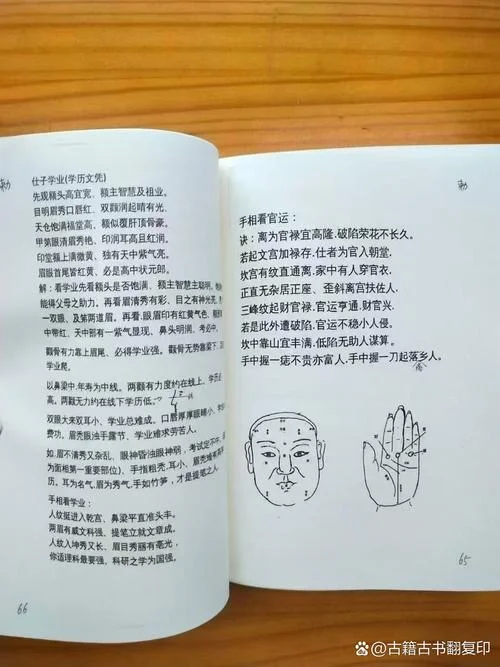 勅
仕子学业(学历文凭)
先观额头高宜宽、额主智慧及祖业。
目明眉秀口唇红、双颧润起晴有光、
天仓饱满福堂高、额似覆肝顶骨豪。
甲第眼清眉秀艳、印润耳高且红润。
印堂额上满微黄、独有天中紫气亮、
眉眼首尾皆红黄、必是高中状元郎。
解:看学业先看额头是否饱满、额主智慧主聪明。
能得父母之助力。再看眉清秀有彩、目之有神光亮、
一双眼、及第两道眉。再看.眼眉印有红黄气色、额
中带红、天中部有一紫气显现、鼻头明润、考必中。
颧骨有力靠上眉尾、必得学业强。颧骨无势靠梁下、
学业爬。
以鼻梁中.年寿为中线。两颧有力度约在线上、学历
高。两颧无力约在线下学历低。
双眼大来双耳小、学业总难成。口唇厚厚眼睛小、学
费功。眉秃眼浊手露节、学业难求劳苦人。
如.眉不清秀又杂乱、眼神昏浊眼神弱,考试定不中。
为面相第一重要部位)、手指粗秃.耳小、眉秃难有高
历。耳为名气.眉为秀气.手如竹笋,才是提笔之人.
手相看学业:
人纹挺进入乾宫、鼻梁平直准头丰。
两眉有威文科强、提笔立就文章成。
人纹入坤秀又长、眉目秀丽有毫光,
你适理科最要强、科研之学为国强。
66
勅
手相看官运:
诀:离为官禄宜高隆.破陷荣花不长久。
若起文宫加禄存.仕者为官入朝堂.
坎宫有纹直通离.家中有人穿官衣.
正直无杂居正座、歪斜离宫扶佐人.
三峰纹起财官禄.官运亨通.财官兴.
若是此外遭破陷.官运不稳小人侵.
坎中靠山宜丰满.低陷无助人谋算。
手中握一痣不贵亦富人.手中握一刀起落乡人。
65
@古籍古书翻复印